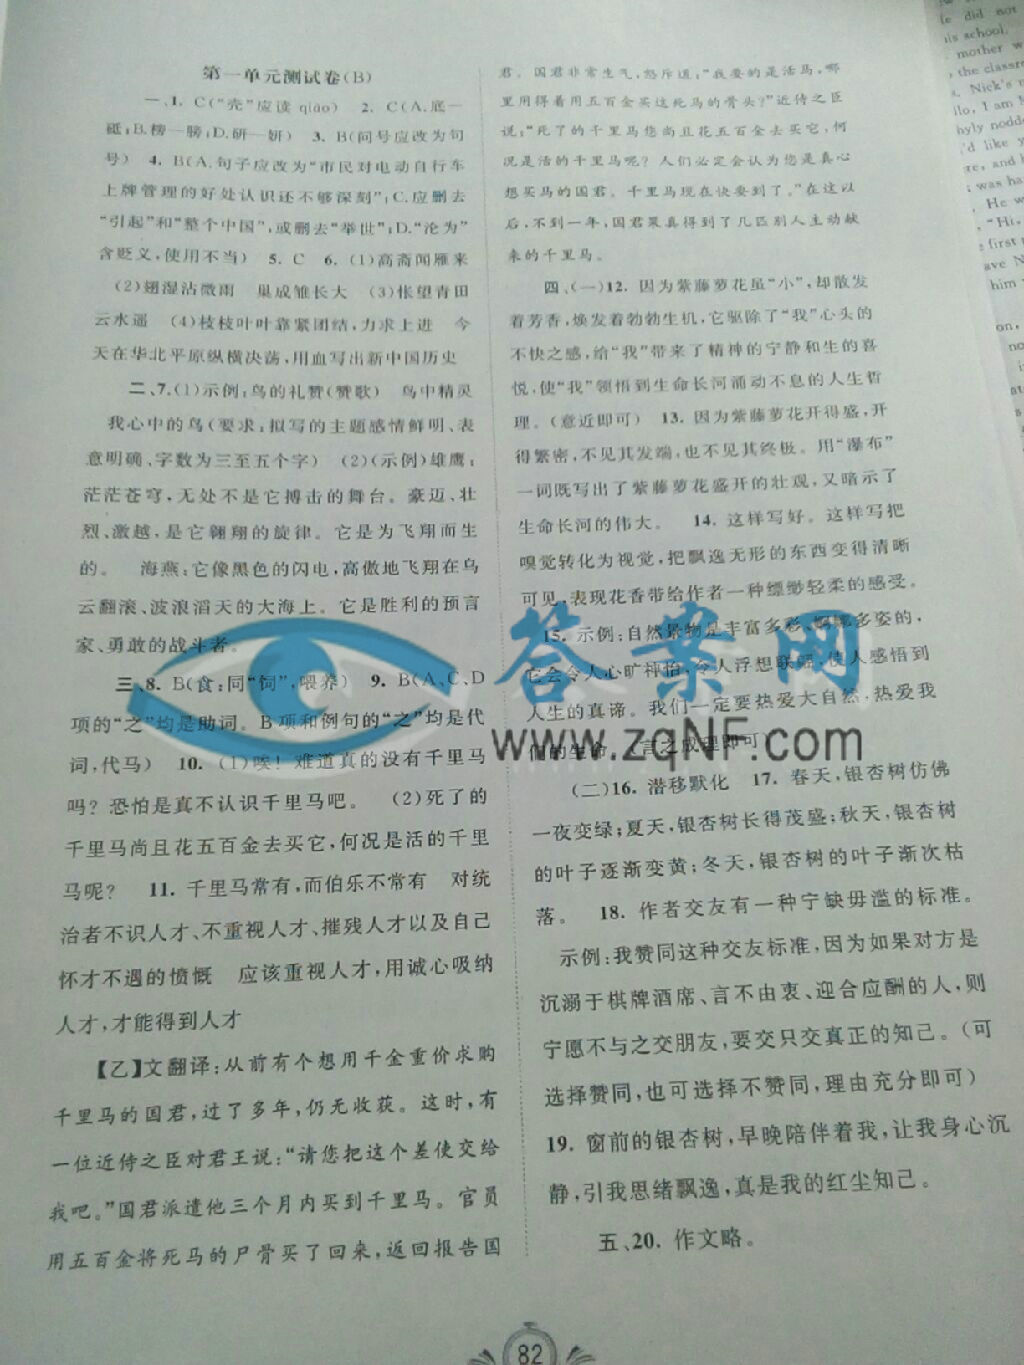 第一单元测试卷(B)
一、1. C(“壳”应读 qiào) 2. C(A.底—
砥;B.榜—膀;D.研—妍) 3. B(问号应改为句
号) 4. B(A.句子应改为“市民对电动自行车
上牌管理的好处认识还不够深刻”;C.应删去
“引起”和“整个中国”,或删去“举世”;D.“沦为”
含贬义,使用不当) 5. C 6. (1)高斋闻雁来
(2)翅湿沾微雨 巢成雏长大 (3)怅望青田
云水遥 (4)枝枝叶叶靠紧团结,力求上进 今
天在华北平原纵横决荡,用血写出新中国历史
二、7.(1)示例:鸟的礼赞(赞歌) 鸟中精灵
我心中的鸟(要求:拟写的主题感情鲜明、表
意明确、字数为三至五个字) (2)(示例)雄鹰:
茫茫苍穹,无处不是它搏击的舞台。豪迈、壮
烈、激越,是它翱翔的旋律。它是为飞翔而生
的。 海燕:它像黑色的闪电,高傲地飞翔在乌
云翻滚、波浪滔天的大海上。它是胜利的预言
家、勇敢的战斗者。
三、8. B(食:同“饲”,喂养) 9. B(A、C、D
项的“之”均是助词。B项和例句的“之”均是代
词,代马) 10. (1)唉!难道真的没有千里马
吗?恐怕是真不认识千里马吧。 (2)死了的
千里马尚且花五百金去买它,何况是活的千里
马呢? 11. 千里马常有,而伯乐不常有 对统
治者不识人才、不重视人才、摧残人才以及自己
怀才不遇的愤慨 应该重视人才,用诚心吸纳
人才,才能得到人才
【乙】文翻译:从前有个想用千金重价求购
千里马的国君,过了多年,仍无收获。这时,有
一位近侍之臣对君王说:“请您把这个差使交给
我吧。”国君派遣他三个月内买到千里马。官员
用五百金将死马的尸骨买了回来,返回报告国
君。国君非常生气,怒斥道:“我要的是活马,哪
里用得着用五百金买这死马的骨头?”近侍之臣
说:“死了的千里马您尚且花五百金去买它,何
况是活的千里马呢?人们必定会认为您是真心
想买马的国君。千里马现在快要到了。”在这以
后,不到一年,国君果真得到了几匹别人主动献
来的千里马。
四、(一)12. 因为紫藤萝花虽“小”,却散发
着芳香,焕发着勃勃生机,它驱除了“我”心头的
不快之感,给“我”带来了精神的宁静和生的喜
悦,使“我”领悟到生命长河涌动不息的人生哲
理。(意近即可) 13. 因为紫藤萝花开得盛,开
得繁密,不见其发端,也不见其终极。用“瀑布”
一词既写出了紫藤萝花盛开的壮观,又暗示了
生命长河的伟大。 14. 这样写好。这样写把
嗅觉转化为视觉,把飘逸无形的东西变得清晰
可见,表现花香带给作者一种缥缈轻柔的感受。
15. 示例:自然景物是丰富多彩、多姿的,
它会令人心旷神怡,令人浮想联翩,使人感悟到
人生的真谛。我们一定要热爱大自然,热爱我
们的生命。(言之成理即可)
(二)16. 潜移默化 17. 春天,银杏树仿佛
一夜变绿;夏天,银杏树长得茂盛;秋天,银杏树
的叶子逐渐变黄;冬天,银杏树的叶子渐次枯
落。 18. 作者交友有一种宁缺毋滥的标准。
示例:我赞同这种交友标准,因为如果对方是
沉溺于棋牌酒席、言不由衷、迎合应酬的人,则
宁愿不与之交朋友,要交只交真正的知己。(可
选择赞同,也可选择不赞同,理由充分即可)
19. 窗前的银杏树,早晚陪伴着我,让我身心沉
静,引我思绪飘逸,真是我的红尘知己。
五、20. 作文略。
82
答案网
www.zqNF.com
did not
his school.
mother w
the classro
Nick's m
hyly nodde
'd like y
was har
He w
"Hi,
first
ave N
him
on,